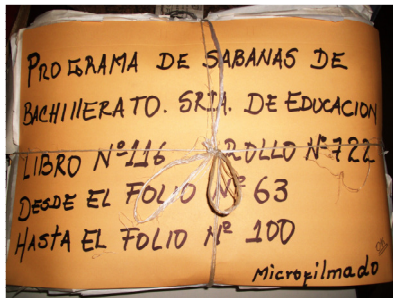 PROGRAMA DE SABANAS DE
BACHILLERATO. SRIA. DE EDUCACION
LIBRO Nº116 ROLLO Nº722
DESDE EL FOLIO Nº 63
HASTA EL FOLIO Nº 100
Microfilmado